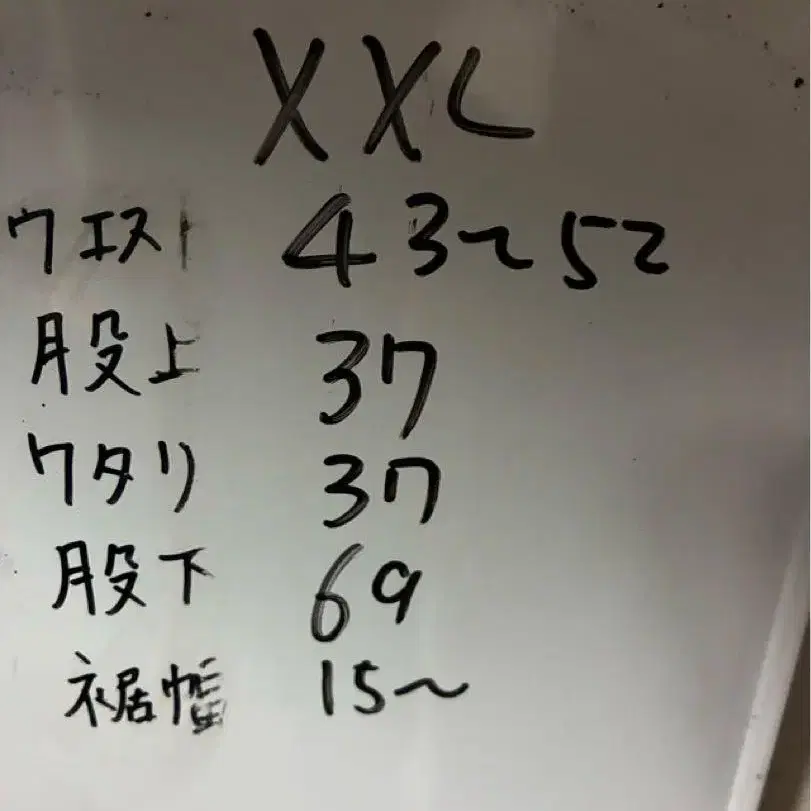 XXL
ウエスト 43〜52
股上 37
ワタリ 37
股下 69
裾幅 15〜